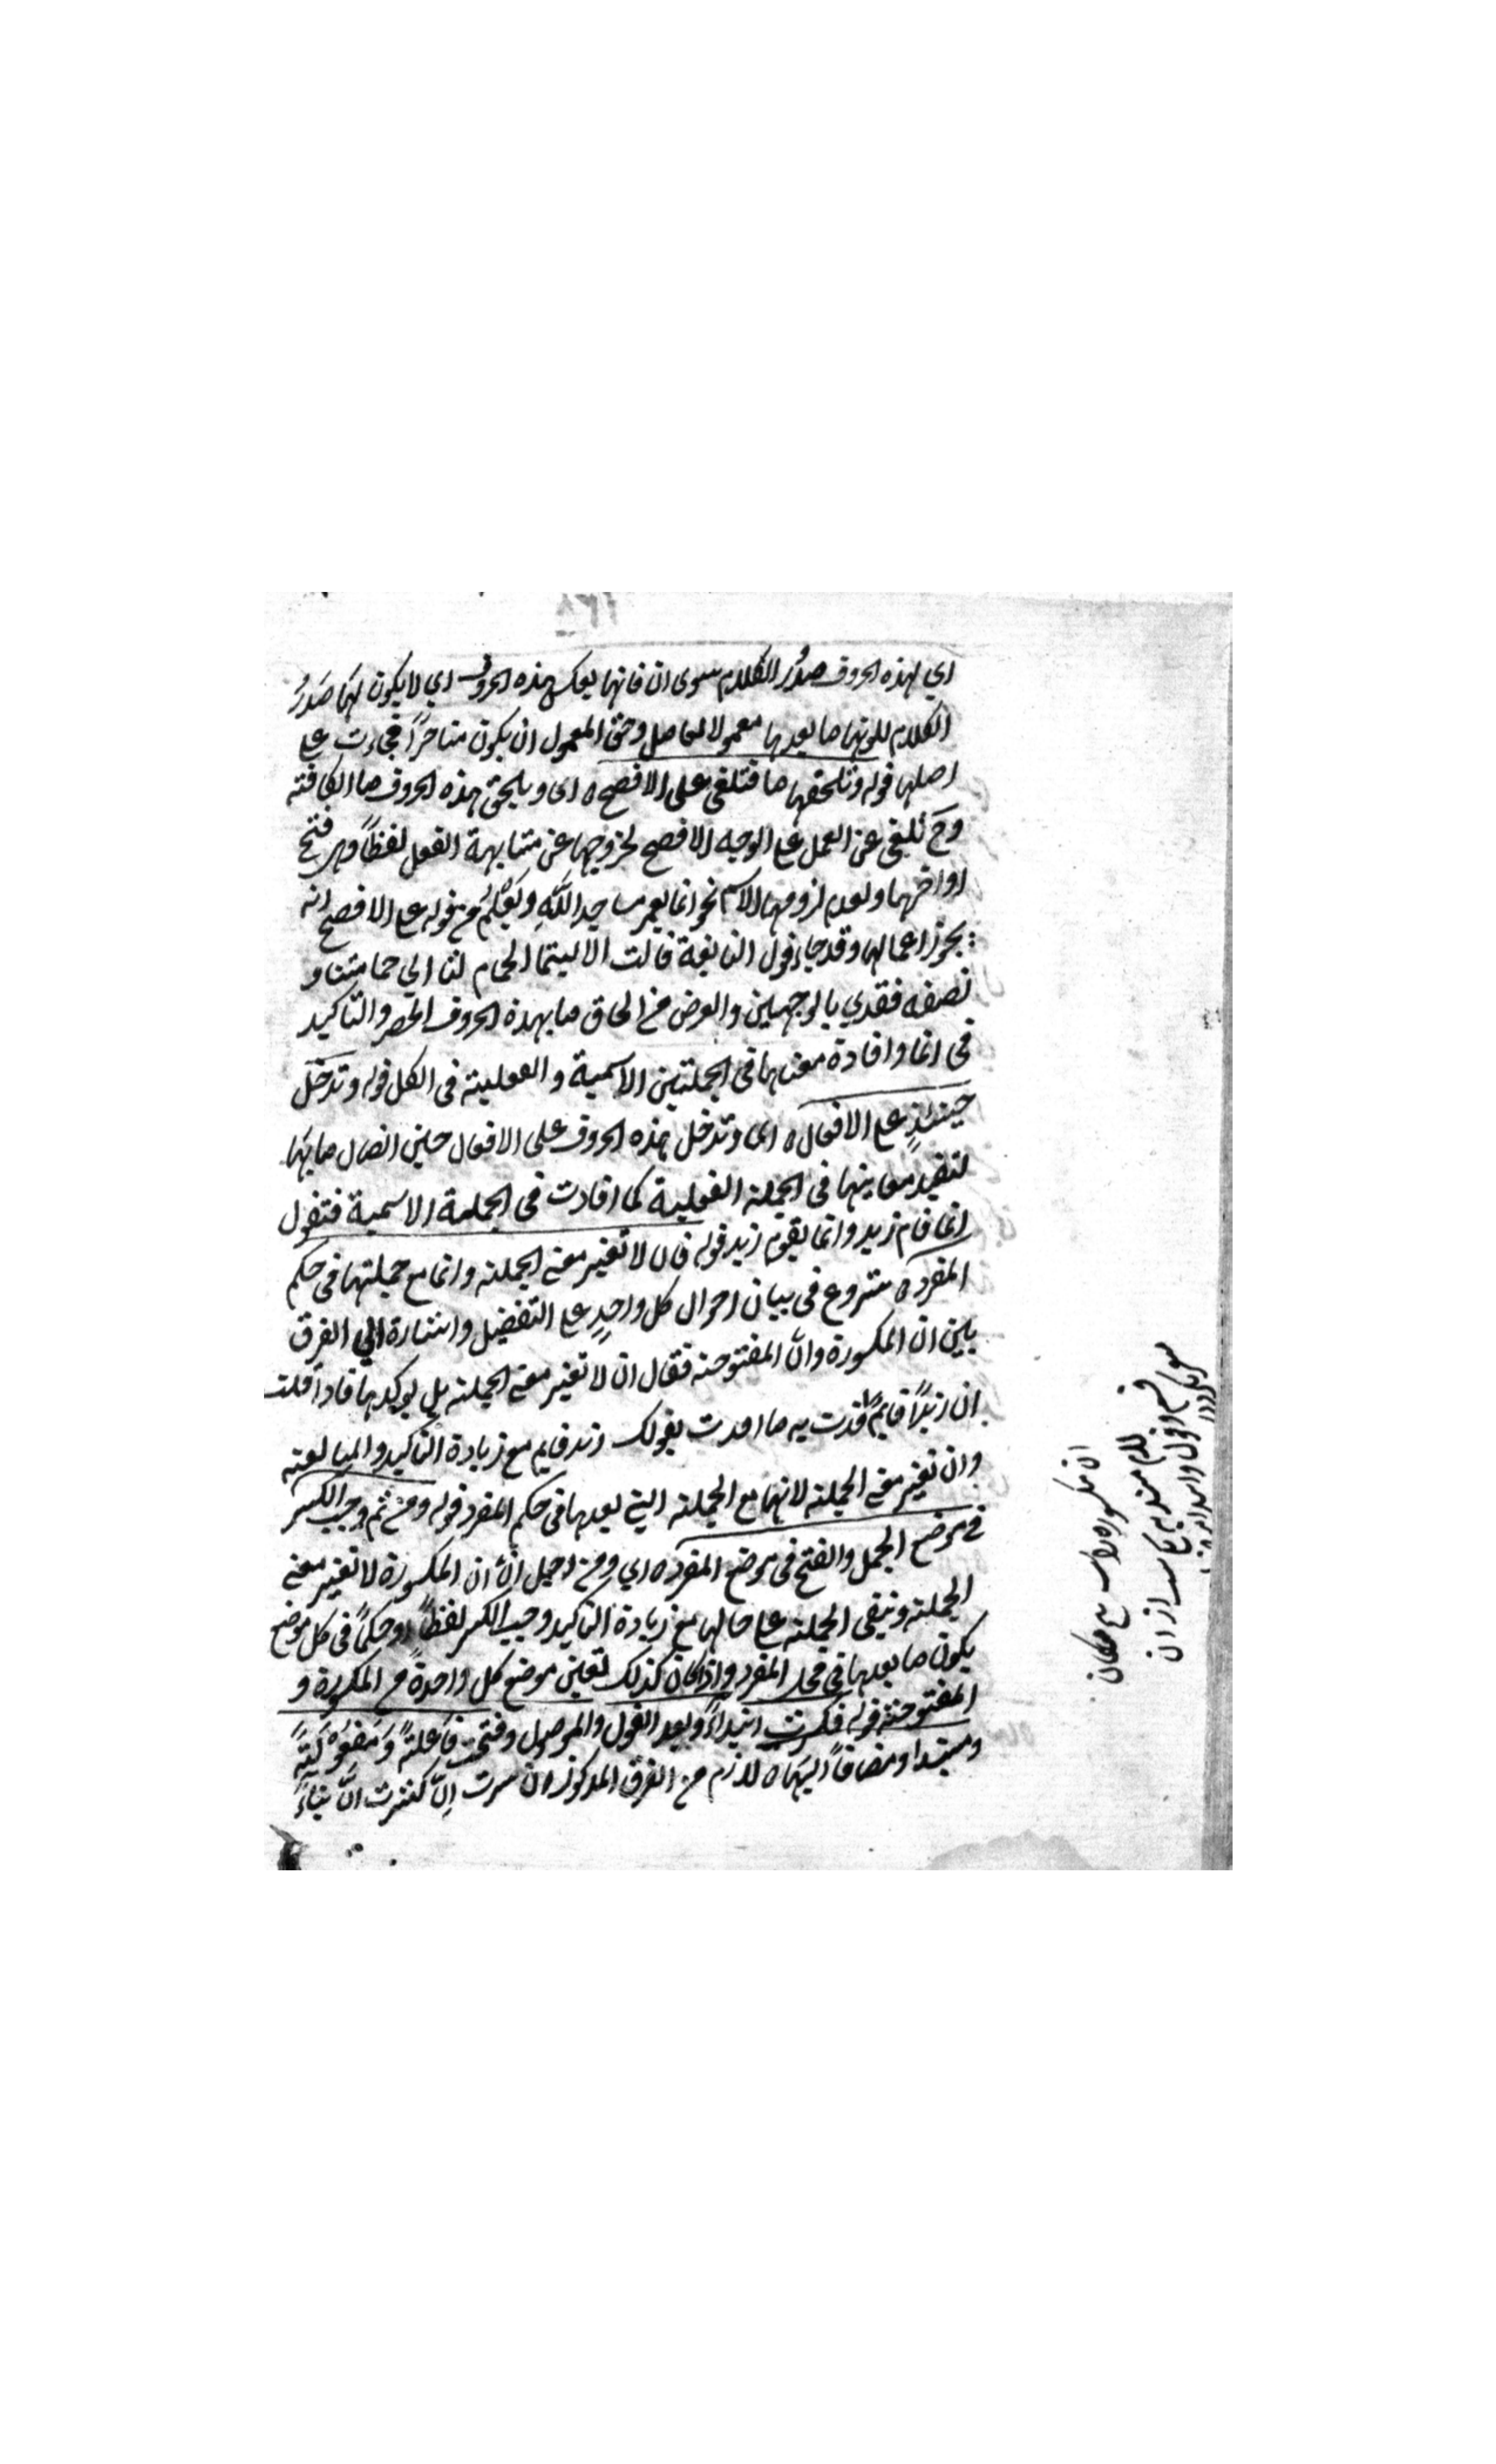 اي لهذه الحروف صدر الكلام سوى ان فانها بعكس هذه الحروف اي لا يكون لها صدر
الكلام لكونها ما بعدها معمولا لعامل وحق المعمول ان يكون متاخرا فجاءت على
اصلها قوله وتلحقها ما فتلغى على الافصح ه اى ويلحق هذه الحروف ما الكافة
وح تلغى عن العمل على الوجه الافصح لخروجها عن مشابهة الفعل لفظا وهى فتح
اواخرها ولعدم لزومها الاسم نحو انما يعمر مساجد الله من قوله على الافصح انه
يجوز اعمالها وقد جاء قول النابغة قالت الا ليتما الحمام لنا الي حمامتنا و
نصفه فقدي بالوجهين والغرض من الحاق ما بهذه الحروف الحصر والتاكيد
فى انما وافادة معناها فى الجملتين الاسمية والفعلية فى الكل قوله وتدخل
حينئذ على الافعال ه اى وتدخل هذه الحروف على الافعال حين اتصال ما بها
لتفيد معاينها فى الجملة الفعلية كما افادت فى الجملة الاسمية فتقول
انما قام زيد وانما يقوم زيد قوله فان لا تغير معنى الجملة وانما مع جملتها فى حكم
المفرد ه شروع فى بيان احوال كل واحد على التفضيل واشارة الي الفرق
بين ان المكسورة وان المفتوحة فقال ان لا تغير معنى الجملة بل يوكدها فاذا قلت
ان زيدا قايم افدت به ما افدت بقولك زيد قايم مع زيادة التاكيد والمبالغة
وان تغير معنى الجملة لانها مع الجملة التي بعدها فى حكم المفرد قوله ومن ثم وجب الكسر
فى موضع الجمل والفتح فى موضع المفرد ه اي ومن اجل ان ان المكسورة لا تغير معنى
الجملة وتبقى الجملة على حالها مع زيادة التاكيد وجب الكسر لفظا او حكما فى كل موضع
يكون ما بعدها فى محل المفرد واذا كان كذلك تعين موضع كل واحدة من المكسورة و
المفتوحة قوله فكسرت ابتداء وبعد القول والموصول وفتحت فاعلة ومفعولة
ومبتدا ومضافا اليها ه لازم من الفرق المذكور ان كسرت ان بناء